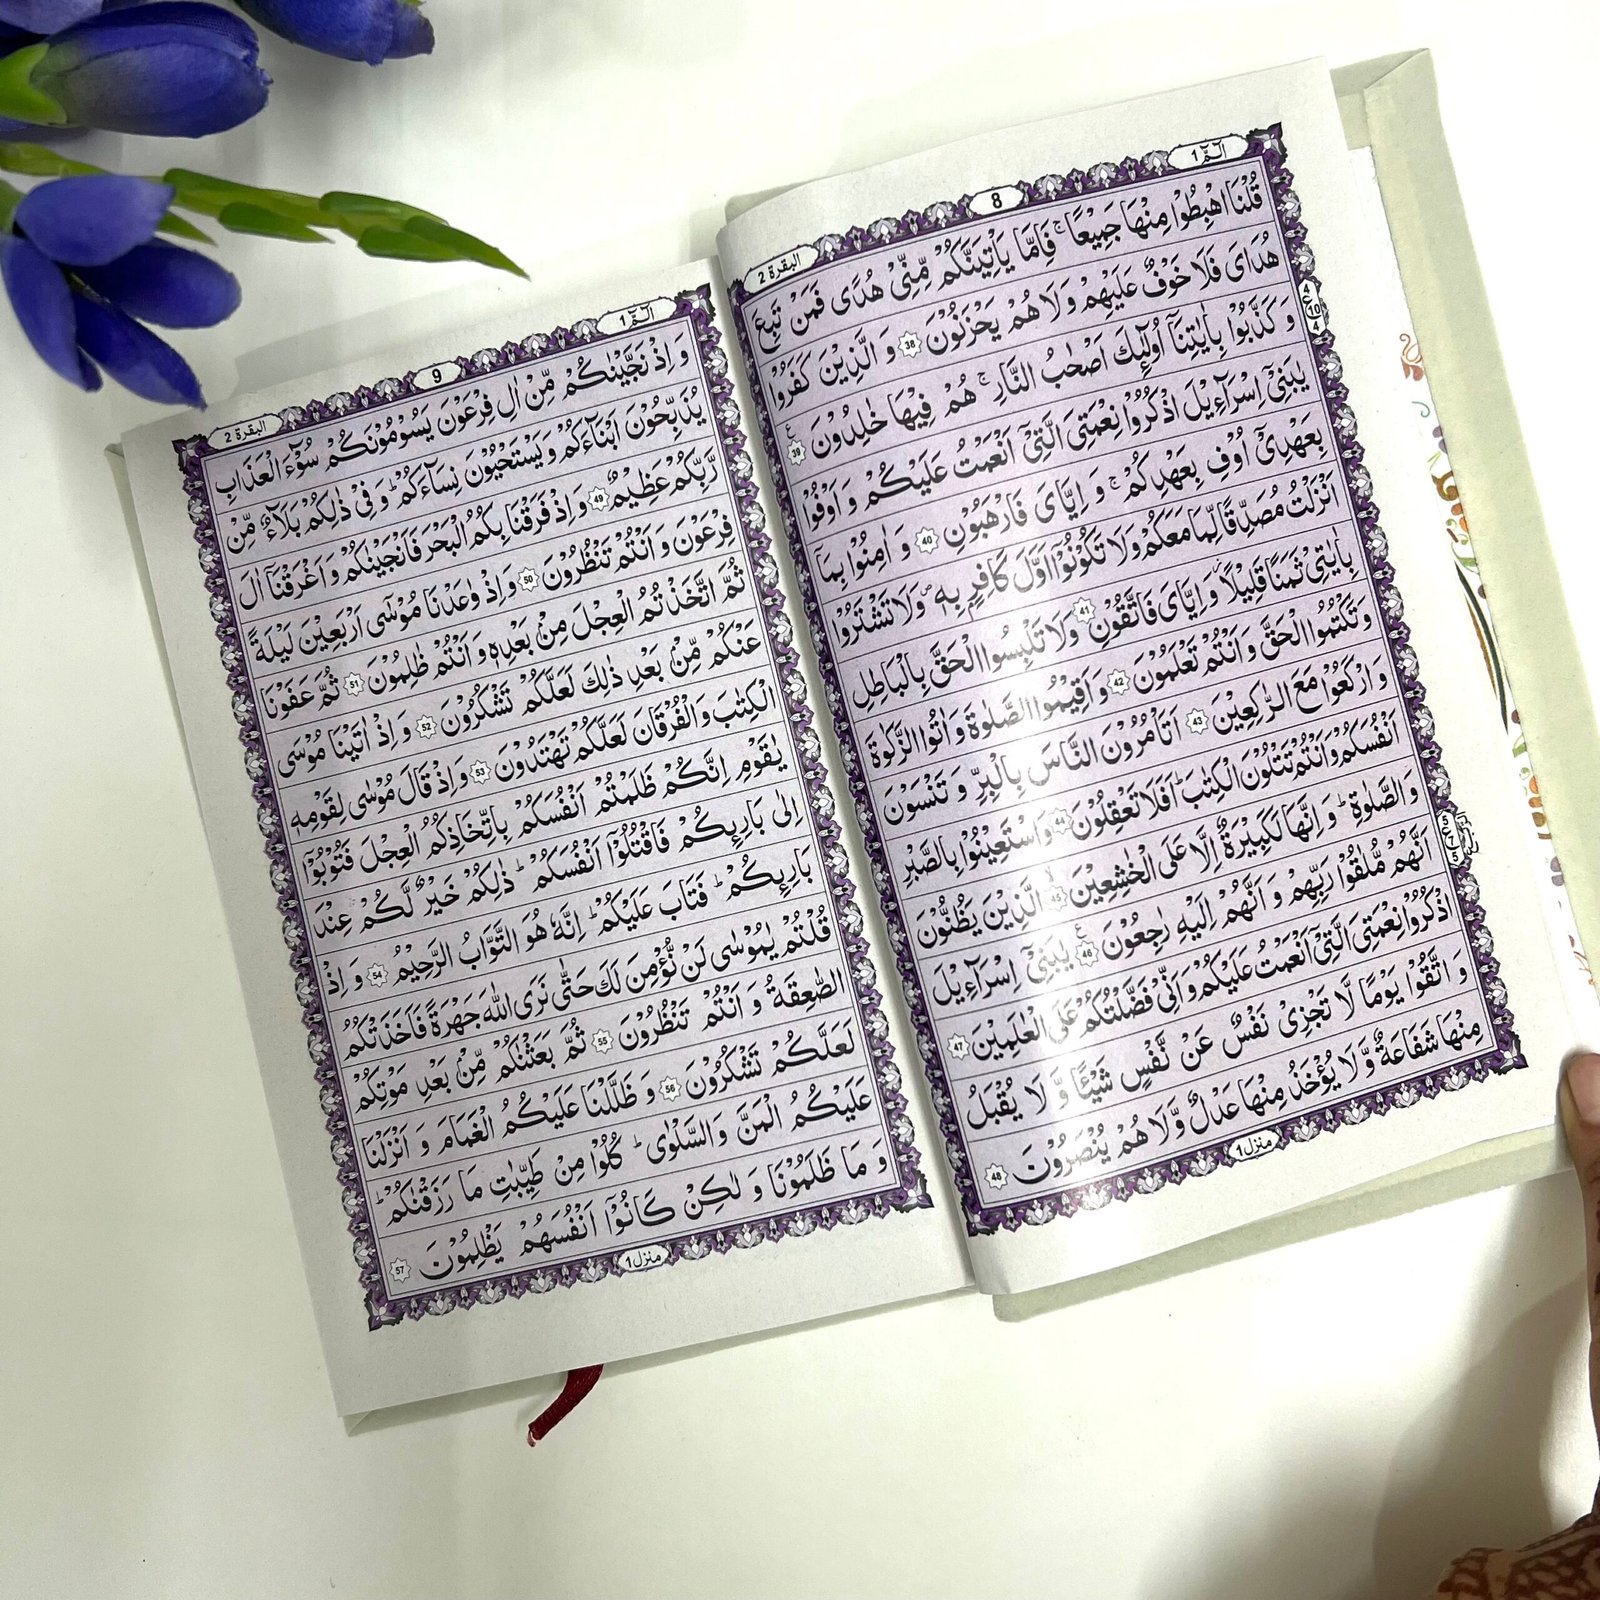 الٓمّٓ 1
8
البقرة 2
قُلْنَا اهْبِطُوْا مِنْهَا جَمِيْعًا ۚ فَاِمَّا يَاْتِيَنَّكُمْ مِّنِّيْ هُدًى فَمَنْ تَبِعَ
هُدَايَ فَلَا خَوْفٌ عَلَيْهِمْ وَلَا هُمْ يَحْزَنُوْنَ 38 وَ الَّذِيْنَ كَفَرُوْا
وَ كَذَّبُوْا بِاٰيٰتِنَاۤ اُولٰٓئِكَ اَصْحٰبُ النَّارِ ۚ هُمْ فِيْهَا خٰلِدُوْنَ 39 ع
4 ع 10 4
يٰبَنِيْۤ اِسْرَآءِيْلَ اذْكُرُوْا نِعْمَتِيَ الَّتِيْۤ اَنْعَمْتُ عَلَيْكُمْ وَ اَوْفُوْا
بِعَهْدِيْۤ اُوْفِ بِعَهْدِكُمْ ۚ وَ اِيَّايَ فَارْهَبُوْنِ 40 وَ اٰمِنُوْا بِمَاۤ
اَنْزَلْتُ مُصَدِّقًا لِّمَا مَعَكُمْ وَلَا تَكُوْنُوْۤا اَوَّلَ كَافِرٍۭ بِهٖ ۪ وَلَا تَشْتَرُوْا
بِاٰيٰتِيْ ثَمَنًا قَلِيْلًا ؗ وَ اِيَّايَ فَاتَّقُوْنِ 41 وَلَا تَلْبِسُوا الْحَقَّ بِالْبَاطِلِ
وَ تَكْتُمُوا الْحَقَّ وَ اَنْتُمْ تَعْلَمُوْنَ 42 وَ اَقِيْمُوا الصَّلٰوةَ وَ اٰتُوا الزَّكٰوةَ
وَ ارْكَعُوْا مَعَ الرّٰكِعِيْنَ 43 اَتَاْمُرُوْنَ النَّاسَ بِالْبِرِّ وَ تَنْسَوْنَ
اَنْفُسَكُمْ وَ اَنْتُمْ تَتْلُوْنَ الْكِتٰبَ ؕ اَفَلَا تَعْقِلُوْنَ 44 وَ اسْتَعِيْنُوْا بِالصَّبْرِ
وَ الصَّلٰوةِ ؕ وَ اِنَّهَا لَكَبِيْرَةٌ اِلَّا عَلَى الْخٰشِعِيْنَ 45 الَّذِيْنَ يَظُنُّوْنَ
اَنَّهُمْ مُّلٰقُوْا رَبِّهِمْ وَ اَنَّهُمْ اِلَيْهِ رٰجِعُوْنَ 46 ع يٰبَنِيْۤ اِسْرَآءِيْلَ
5 ع 7 5
اذْكُرُوْا نِعْمَتِيَ الَّتِيْۤ اَنْعَمْتُ عَلَيْكُمْ وَ اَنِّيْ فَضَّلْتُكُمْ عَلَى الْعٰلَمِيْنَ 47
وَ اتَّقُوْا يَوْمًا لَّا تَجْزِيْ نَفْسٌ عَنْ نَّفْسٍ شَيْـًٔا وَّ لَا يُقْبَلُ
مِنْهَا شَفَاعَةٌ وَّ لَا يُؤْخَذُ مِنْهَا عَدْلٌ وَّ لَا هُمْ يُنْصَرُوْنَ 48
منزل 1
الٓمّٓ 1
9
البقرة 2
وَ اِذْ نَجَّيْنٰكُمْ مِّنْ اٰلِ فِرْعَوْنَ يَسُوْمُوْنَكُمْ سُوْٓءَ الْعَذَابِ
يُذَبِّحُوْنَ اَبْنَآءَكُمْ وَ يَسْتَحْيُوْنَ نِسَآءَكُمْ ؕ وَ فِيْ ذٰلِكُمْ بَلَآءٌ مِّنْ
رَّبِّكُمْ عَظِيْمٌ 49 وَ اِذْ فَرَقْنَا بِكُمُ الْبَحْرَ فَاَنْجَيْنٰكُمْ وَ اَغْرَقْنَاۤ اٰلَ
فِرْعَوْنَ وَ اَنْتُمْ تَنْظُرُوْنَ 50 وَ اِذْ وٰعَدْنَا مُوْسٰۤى اَرْبَعِيْنَ لَيْلَةً
ثُمَّ اتَّخَذْتُمُ الْعِجْلَ مِنْۢ بَعْدِهٖ وَ اَنْتُمْ ظٰلِمُوْنَ 51 ثُمَّ عَفَوْنَا
عَنْكُمْ مِّنْۢ بَعْدِ ذٰلِكَ لَعَلَّكُمْ تَشْكُرُوْنَ 52 وَ اِذْ اٰتَيْنَا مُوْسَى
الْكِتٰبَ وَ الْفُرْقَانَ لَعَلَّكُمْ تَهْتَدُوْنَ 53 وَ اِذْ قَالَ مُوْسٰى لِقَوْمِهٖ
يٰقَوْمِ اِنَّكُمْ ظَلَمْتُمْ اَنْفُسَكُمْ بِاتِّخَاذِكُمُ الْعِجْلَ فَتُوْبُوْۤا
اِلٰى بَارِئِكُمْ فَاقْتُلُوْۤا اَنْفُسَكُمْ ؕ ذٰلِكُمْ خَيْرٌ لَّكُمْ عِنْدَ
بَارِئِكُمْ ؕ فَتَابَ عَلَيْكُمْ ؕ اِنَّهٗ هُوَ التَّوَّابُ الرَّحِيْمُ 54 وَ اِذْ
قُلْتُمْ يٰمُوْسٰى لَنْ نُّؤْمِنَ لَكَ حَتّٰى نَرَى اللّٰهَ جَهْرَةً فَاَخَذَتْكُمُ
الصّٰعِقَةُ وَ اَنْتُمْ تَنْظُرُوْنَ 55 ثُمَّ بَعَثْنٰكُمْ مِّنْۢ بَعْدِ مَوْتِكُمْ
لَعَلَّكُمْ تَشْكُرُوْنَ 56 وَ ظَلَّلْنَا عَلَيْكُمُ الْغَمَامَ وَ اَنْزَلْنَا
عَلَيْكُمُ الْمَنَّ وَ السَّلْوٰى ؕ كُلُوْا مِنْ طَيِّبٰتِ مَا رَزَقْنٰكُمْ ؕ
وَ مَا ظَلَمُوْنَا وَ لٰكِنْ كَانُوْۤا اَنْفُسَهُمْ يَظْلِمُوْنَ 57
منزل 1